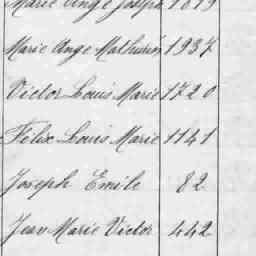 Marie Ange Joseph 1819
Marie Ange Mathurin 1937
Victor Louis Marie 1720
Félix Louis Marie 1141
Joseph Emile 82
Jean Marie Victor 442